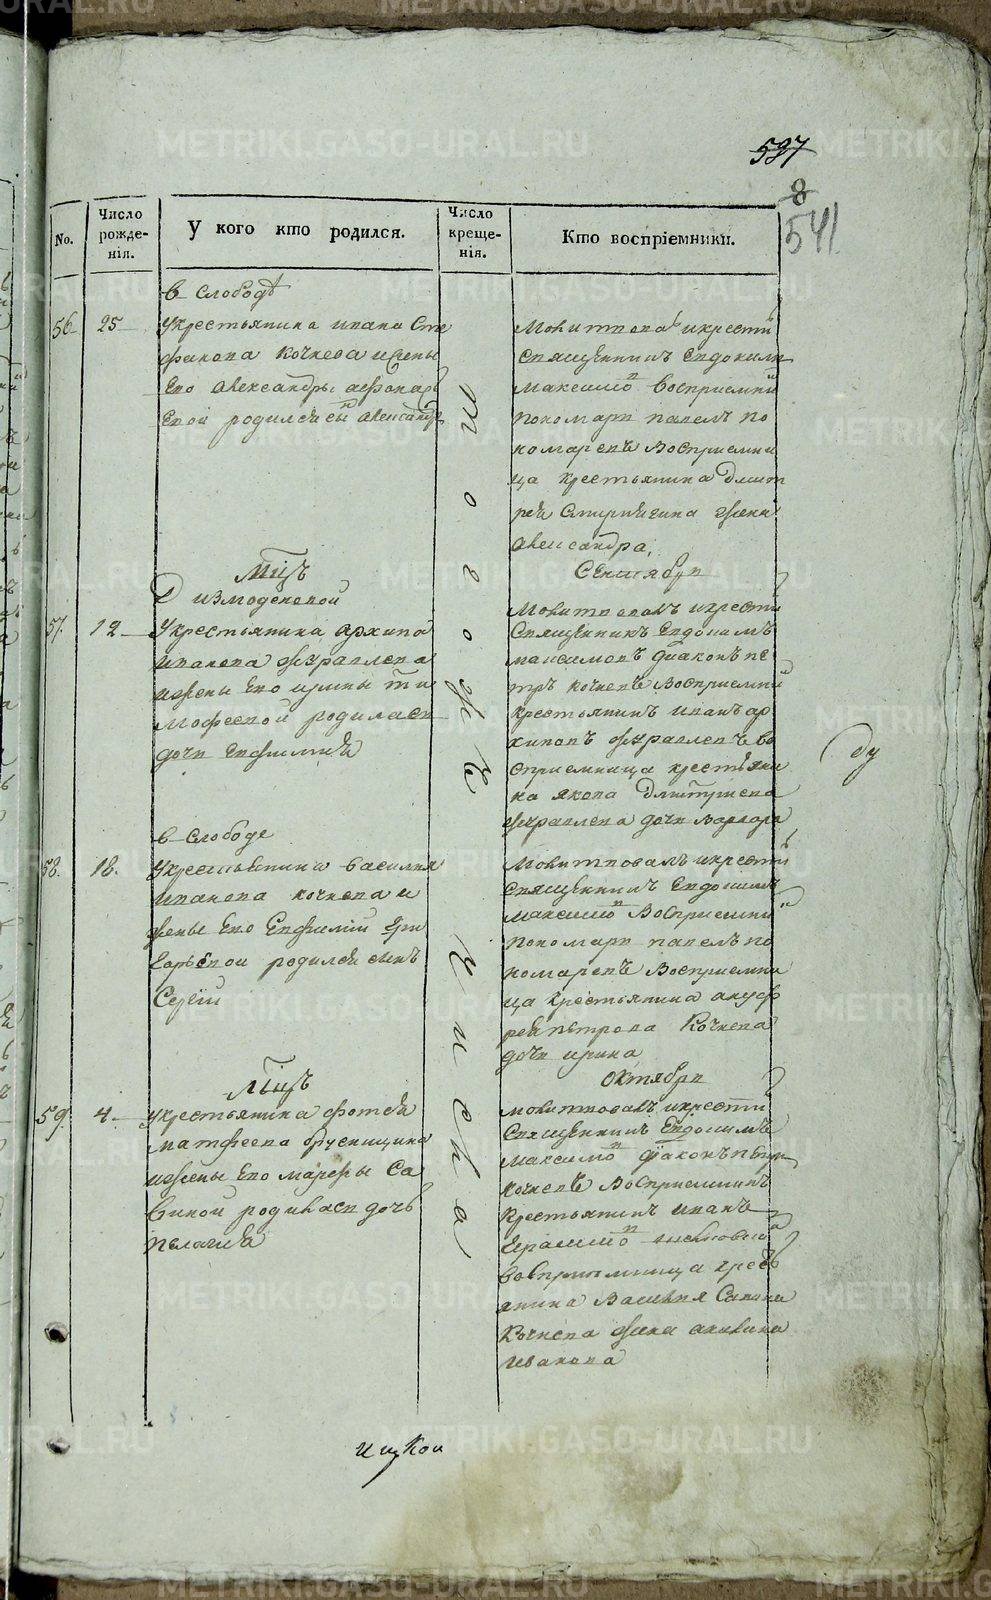 537
8
541
No.
Число рожде-
нія.
У кого кто родился.
Число креще-
нія.
Кто воспріемники.
в слободѣ
56. 25
У крестьянина ивана Сте
фанова кочнева и жены
Его александры
родился сы александр
молитвовал и крести
священникъ Евдоким
максимо восприемни
пономарь павелъ по
номаревъ восприемни
ца крестьянина Дмит
рея жена
александра,
Мцъ
Сентября
Д измоденовой
57. 12
У крестьянина архипа
иванова журавлева
и жены его ирины ти
мофеевой родиласъ
дочь евфимия
молитвовалъ и крести
священникъ Евдокимъ
максимовъ диаконъ пе
тръ кочневъ восприемни
крестьянинъ иванъ ар
хиповъ журавлевъ во
сприемница крестьяни
на якова Дмитриева
журавлева дочь варвара
в слободе
58. 18.
У крестьянина василия
иванова кочнева и
жены его Евфимии Гри
горьевой родился сынъ
Сергiй
молитвовалъ и крести
священникъ Евдокимъ
максимо восприемни
пономарь павелъ по
номаревъ восприемни
ца крестьянина ануф
рея петрова кочнева
дочь ирина
Мцъ
октября
59. 4.
У крестьянина фотея
матфеева брусницина
и жены его марфы са
виной родилась дочь
пелагия
молитвовалъ и крести
священникъ Евдокимъ
максимо диаконъ петръ
кочневъ восприемникъ
крестьянинъ иванъ
герасимо
восприемница кресть
янина василия савина
кочнева жена акилина
иванова
того же числа
METRIKI.GASO-URAL.RU